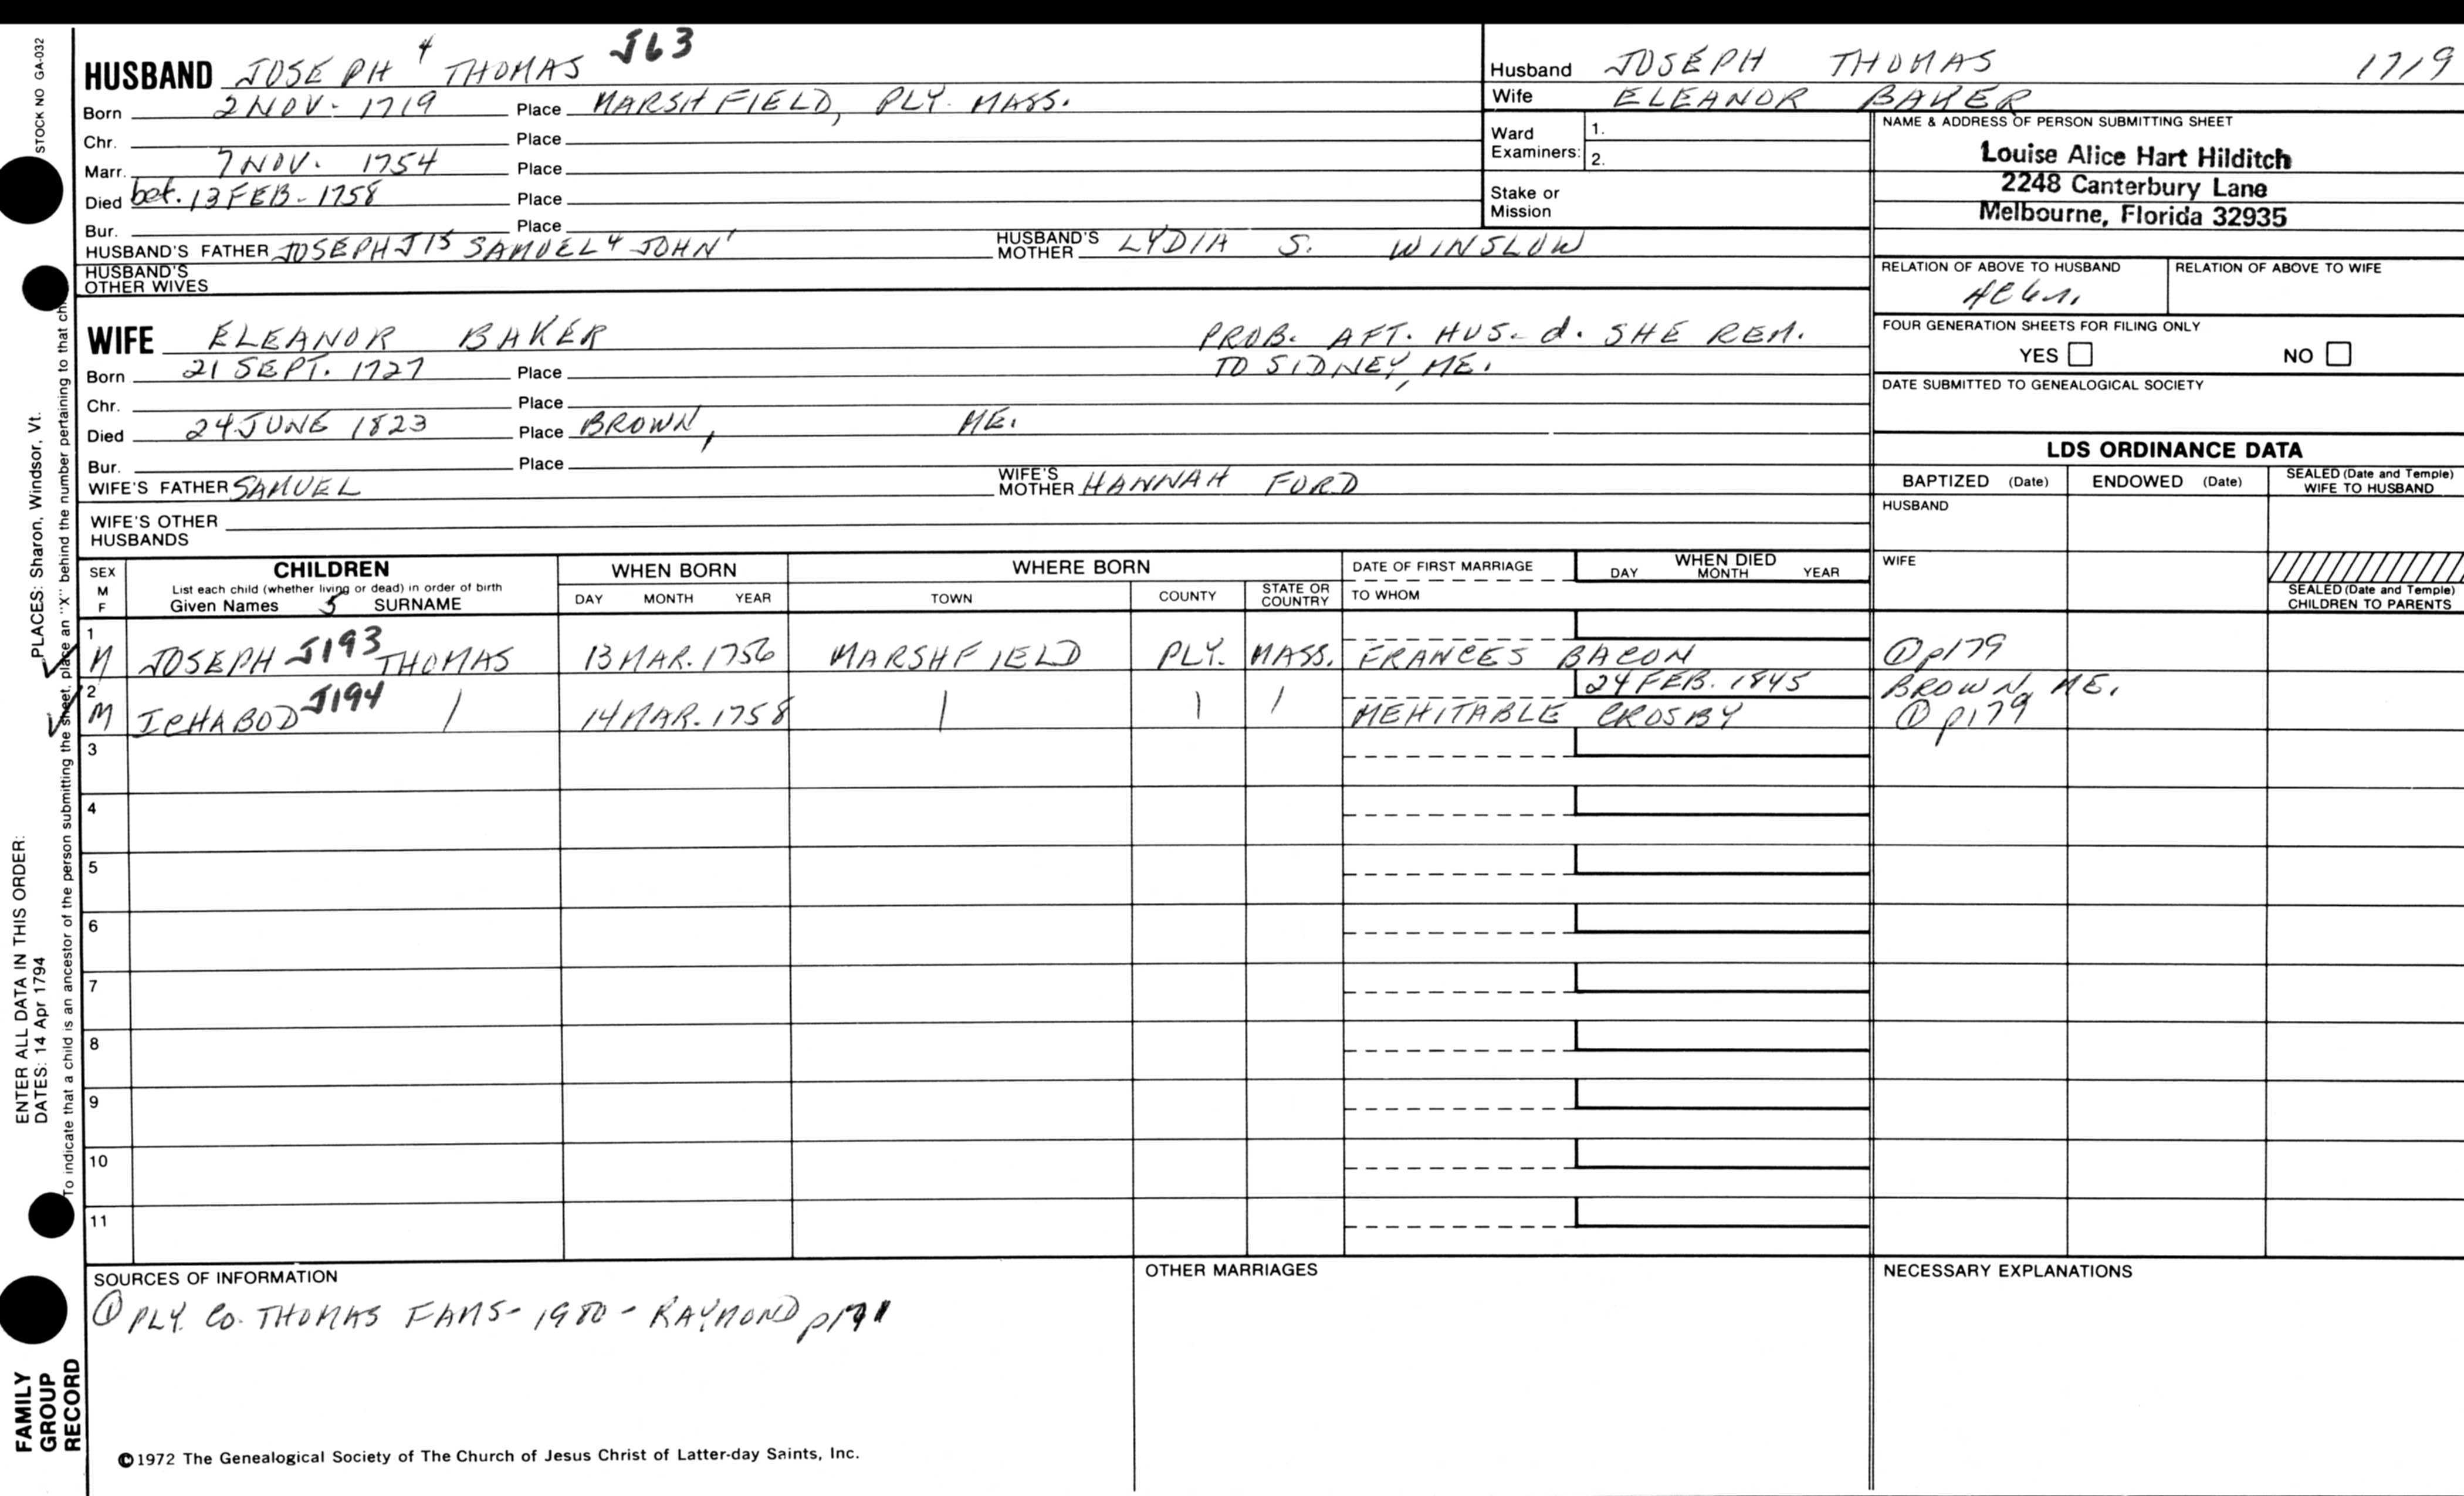 STOCK NO GA-032
HUSBAND JOSEPH 4 THOMAS J63
Born 2 NOV. 1719 Place MARSHFIELD, PLY. MASS.
Chr. Place
Marr. 7 NOV. 1754 Place
Died bef. 13 FEB. 1758 Place
Bur. Place
HUSBAND'S FATHER JOSEPH J15 SAMUEL 4 JOHN 1 HUSBAND'S MOTHER LYDIA S. WINSLOW
HUSBAND'S OTHER WIVES
WIFE ELEANOR BAKER PROB. AFT. HUS. d. SHE REM.
TO SIDNEY, ME.
Born 21 SEPT. 1727 Place
Chr. Place
Died 24 JUNE 1823 Place BROWN, ME.
Bur. Place
WIFE'S FATHER SAMUEL WIFE'S MOTHER HANNAH FORD
WIFE'S OTHER HUSBANDS
Husband JOSEPH THOMAS 1719
Wife ELEANOR BAKER
Ward Examiners: 1.
2.
Stake or Mission
NAME & ADDRESS OF PERSON SUBMITTING SHEET
Louise Alice Hart Hilditch
2248 Canterbury Lane
Melbourne, Florida 32935
RELATION OF ABOVE TO HUSBAND RELATION OF ABOVE TO WIFE
FOUR GENERATION SHEETS FOR FILING ONLY
YES NO
DATE SUBMITTED TO GENEALOGICAL SOCIETY
LDS ORDINANCE DATA
BAPTIZED (Date) ENDOWED (Date) SEALED (Date and Temple) WIFE TO HUSBAND
HUSBAND
WIFE
SEALED (Date and Temple) CHILDREN TO PARENTS
SEX M F CHILDREN WHEN BORN WHERE BORN DATE OF FIRST MARRIAGE WHEN DIED
List each child (whether living or dead) in order of birth
Given Names 5 SURNAME DAY MONTH YEAR TOWN COUNTY STATE OR COUNTRY TO WHOM DAY MONTH YEAR
1 M JOSEPH J193 THOMAS 13 MAR. 1756 MARSHFIELD PLY. MASS. FRANCES BACON ① p179
24 FEB. 1845 BROWN, ME.
2 M ICHABOD J194 / 14 MAR. 1758 | | / MEHITABLE CROSBY ① p179
3
4
5
6
7
8
9
10
11
SOURCES OF INFORMATION OTHER MARRIAGES NECESSARY EXPLANATIONS
① PLY. CO. THOMAS FAMS - 1980 - RAYMOND
©1972 The Genealogical Society of The Church of Jesus Christ of Latter-day Saints, Inc.
PLACES: Sharon, Windsor, Vt.
ENTER ALL DATA IN THIS ORDER:
DATES: 14 Apr 1794
To indicate that a child is an ancestor of the person submitting the sheet, place an "X" behind the number pertaining to that
FAMILY
GROUP
RECORD